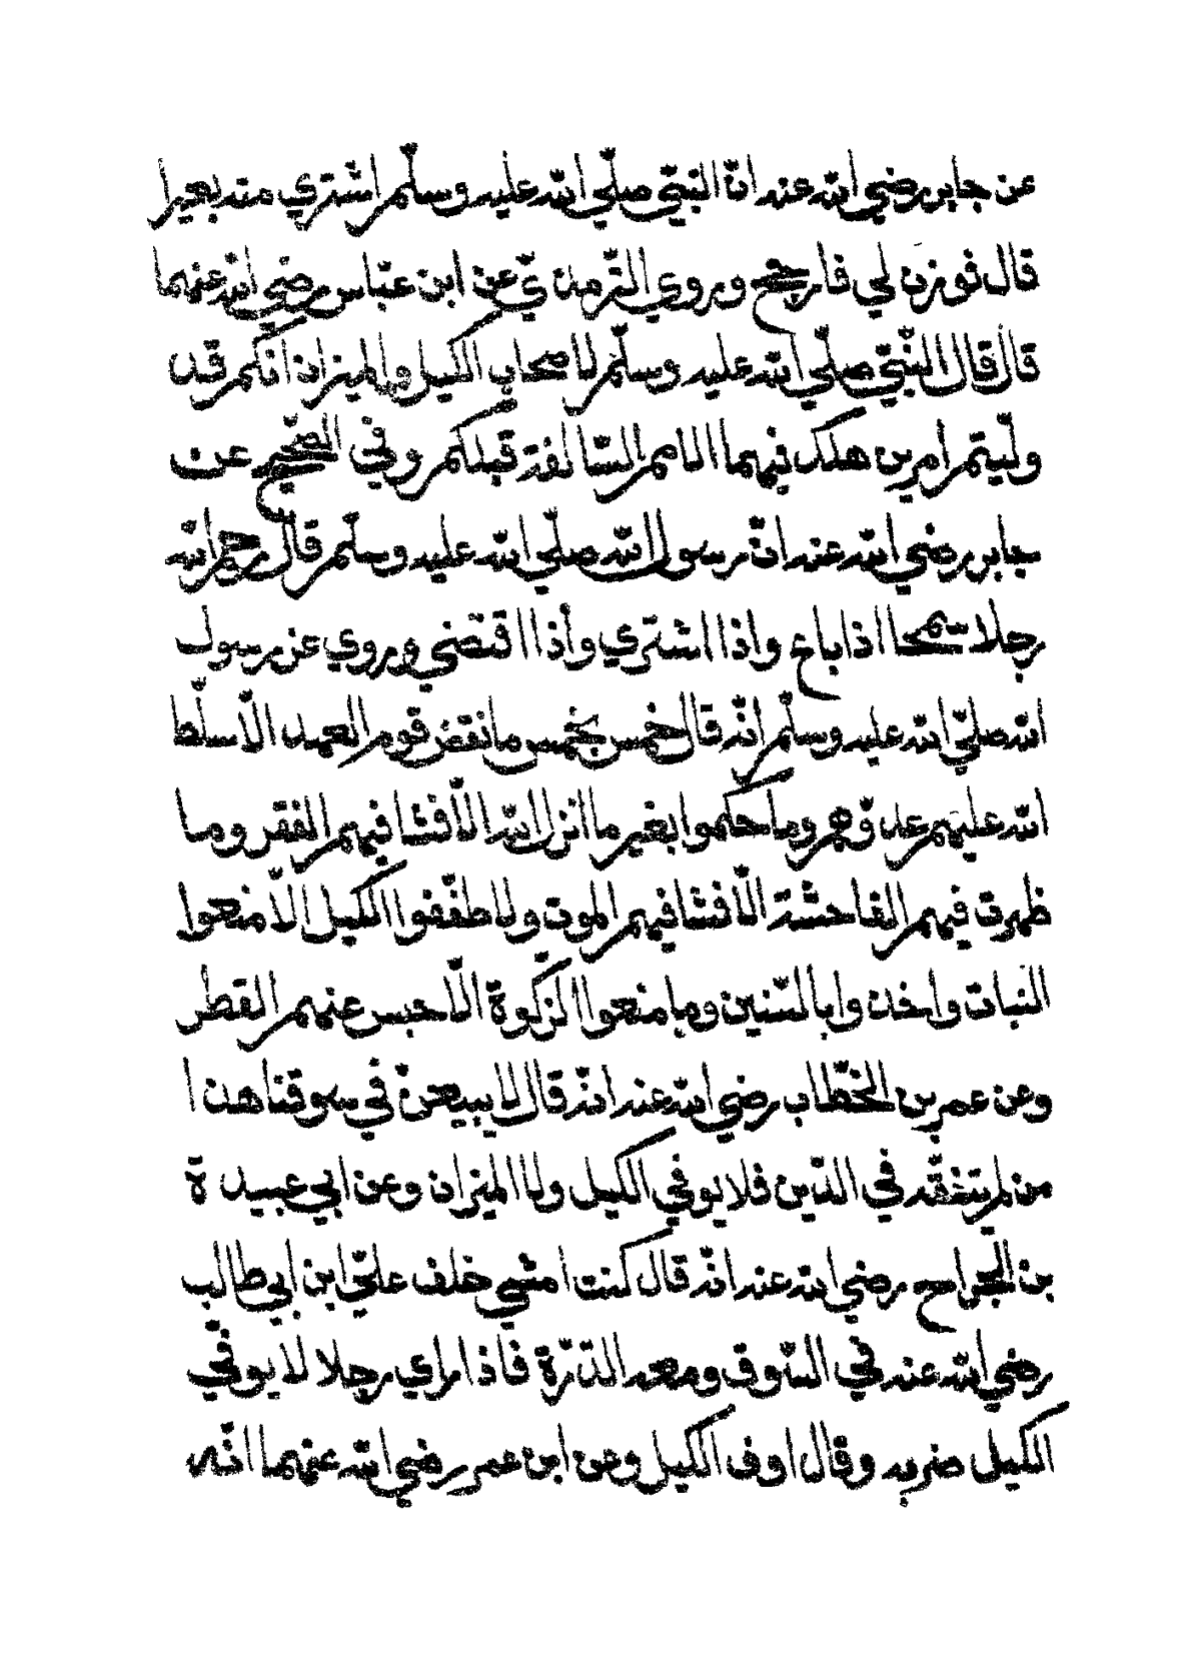 عن جابر رضي الله عنه انّ النبيّ صلّي الله عليه وسلّم اشتري منه بعيرا
قال فوزن لي فارجح وروي التّرمذيّ عن ابن عبّاس رضي الله عنهما
قال قال النّبيّ صلّي الله عليه وسلّم لاصحاب الكيل والميزان انكم قد
ولّيتم امرين هلك فيهما الامم السّالفة قبلكم وفي الصّحيح عن
جابر رضي الله عنه انّ رسول الله صلّي الله عليه وسلّم قال رحم الله
رجلا سمحا اذا باع واذا اشتري وأذا اقتضي وروي عن رسول
الله صلّي الله عليه وسلّم انّه قال خمس بخمس مانقض قوم العهد الّا سلّط
الله عليهم عدوّهم وما حكموا بغير ما انزل الله الّا فشا فيهم الفقر وما
ظهرت فيهم الفاحشة الّا فشا فيهم الموت ولا طفّفوا الكيل الّا منعوا
النبات واخذوا بالسّنين وما منعوا الزكوة الّا حبس عنهم القطر
وعن عمر بن الخطّاب رضي الله عنه انّه قال لا يبيعنّ في سوقنا هذا
من لم يتفقّه في الدّين فلا يوفي الكيل ولا الميزان وعن ابي عبيدة
بن الجراح رضي الله عنه انّه قال كنت امشي خلف عليّ ابن ابي طالب
رضي الله عنه في السّوق ومعه الدّرّة فاذا راي رجلا لا يوفي
الكيل ضربه وقال اوف الكيل وعن ابن عمر رضي الله عنهما انّه